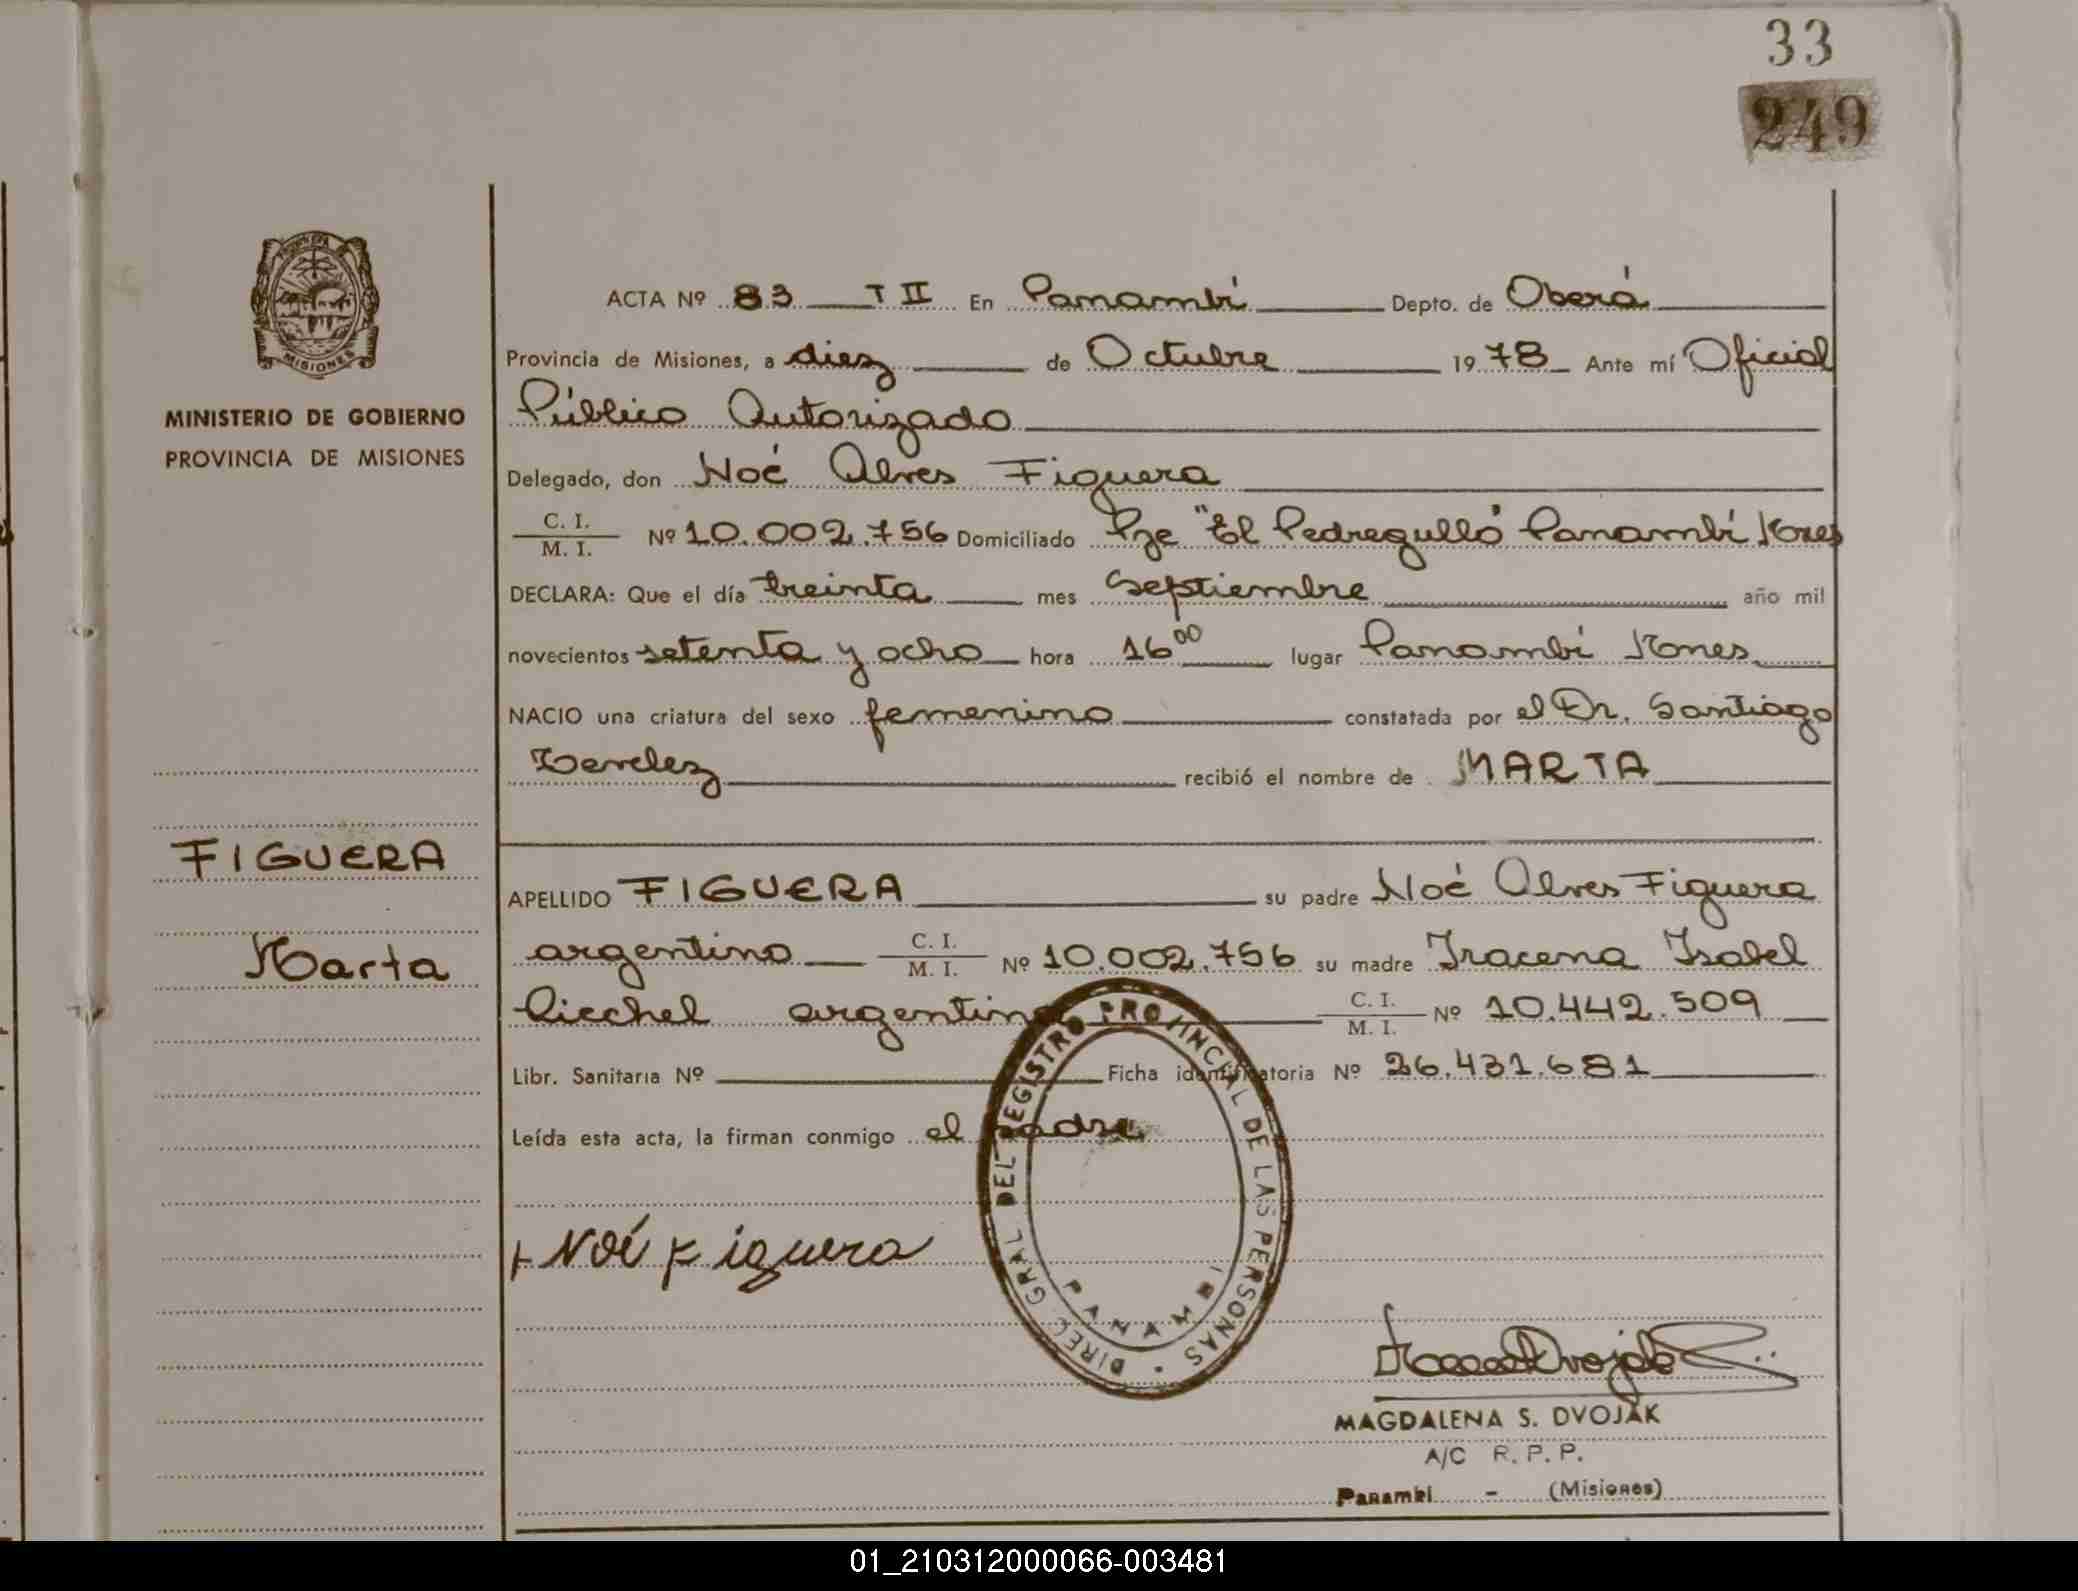 33
249
MISIONES
MINISTERIO DE GOBIERNO
PROVINCIA DE MISIONES
FIGUERA
Marta
ACTA Nº 83 T II En Panambí Depto. de Oberá
Provincia de Misiones, a diez de Octubre 1978 Ante mí Oficial
Público Autorizado
Delegado, don Noé Alves Figuera
C. I.
M. I. Nº 10.002.756 Domiciliado Pje "El Pedregullo" Panambí Mnes
DECLARA: Que el día treinta mes septiembre año mil
novecientos setenta y ocho hora 16⁰⁰ lugar Panambí Mnes
NACIO una criatura del sexo femenino constatada por el Dr. Santiago
recibió el nombre de MARTA
APELLIDO FIGUERA su padre Noé Alves Figuera
argentino C. I.
M. I. Nº 10.002.756 su madre Iracena Isabel
argentina C. I.
M. I. Nº 10.442.509
Libr. Sanitaria Nº Ficha identificatoria Nº 26.431.681
Leída esta acta, la firman conmigo el padre
Noé Figuera
DIREC. GRAL DEL REGISTRO PROVINCIAL DE LAS PERSONAS
PANAMBI
MAGDALENA S. DVOJAK
A/C R. P. P.
Panambi - (Misiones)
01_210312000066-003481